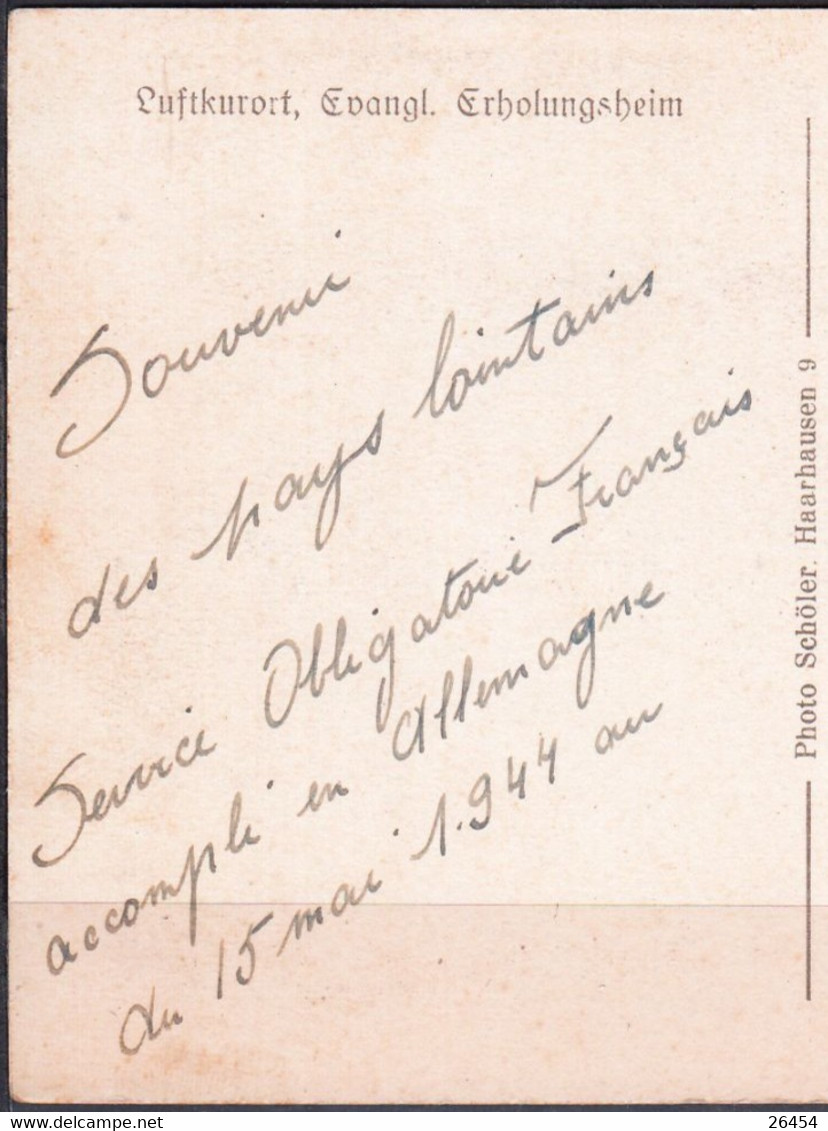 Luftkurort, Evangl. Erholungsheim
Souvenir
des pays lointains
Service Obligatoire Français
accompli en Allemagne
du 15 mai 1.944 au
Photo Schöler. Haarhausen 9
delcampe.net
26454